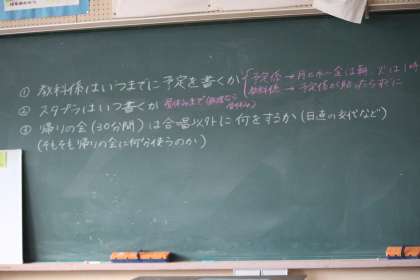 ① 教科係はいつまでに予定を書くか
予定係→月と水〜金は朝、火は1時
教科係→予定係が助かるまでに
② スタプラはいつ書くか 昼休みまで
③ 帰りの会(30分間)は合唱以外に何をするか(日直の交代など)
(そもそも帰りの会に何分使うのか)